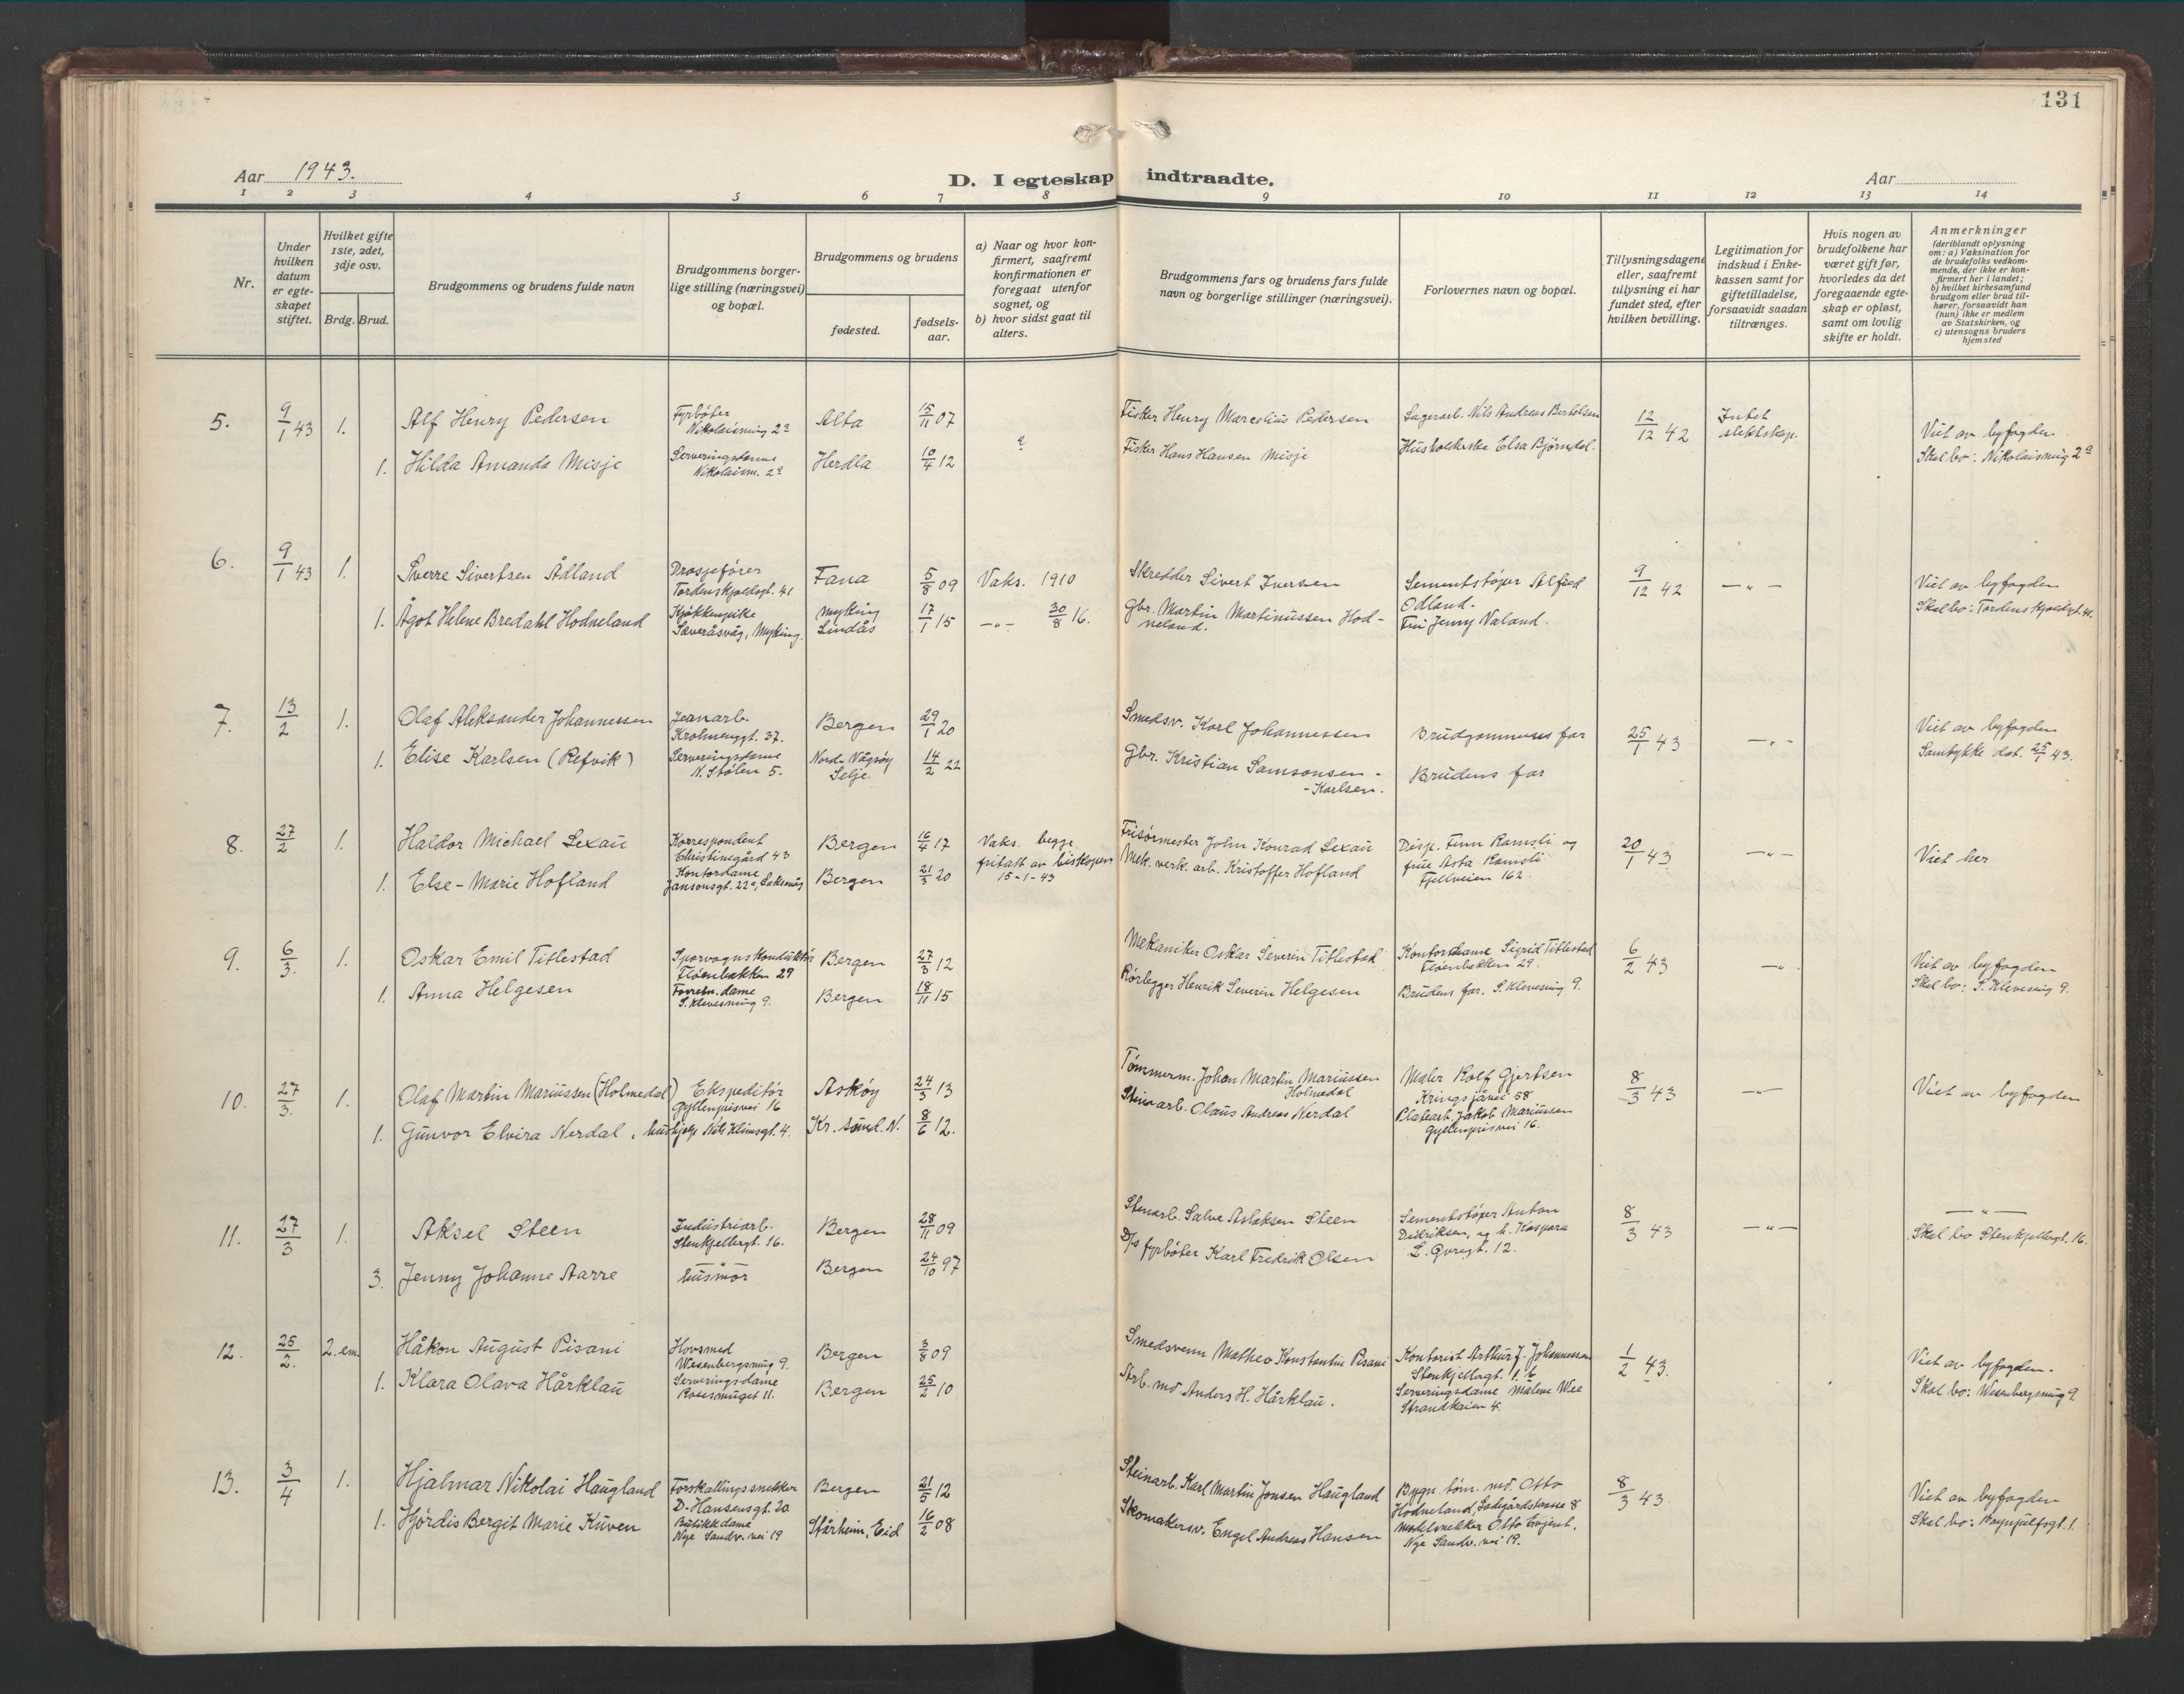 131
Aar 1943.
D. I egteskap indtraadte.
Aar
1 2 3 4 5 6 7 8 9 10 11 12 13 14
Nr.
Under hvilken datum er egteskapet stiftet.
Hvilket gifte 1ste, 2det, 3dje osv.
Brdg. Brud.
Brudgommens og brudens fulde navn
Brudgommens borgerlige stilling (næringsvei) og bopæl.
Brudgommens og brudens
fødested.
fødselsaar.
a) Naar og hvor konfirmert, saafremt konfirmationen er foregaat utenfor sognet, og
b) hvor sidst gaat til alters.
Brudgommens fars og brudens fars fulde navn og borgerlige stillinger (næringsvei).
Forlovernes navn og bopæl.
Tillysningsdagene eller, saafremt tillysning ei har fundet sted, efter hvilken bevilling.
Legitimation for indskud i Enkekassen samt for giftetilladelse, forsaavidt saadan tiltrænges.
Hvis nogen av brudefolkene har været gift før, hvorledes da det foregaaende egteskap er opløst, samt om lovlig skifte er holdt.
Anmerkninger
(deriblandt oplysning om: a) Vaksination for de brudefolks vedkommende, der ikke er konfirmert her i landet; b) hvilket kirkesamfund brudgom eller brud tilhører, forsaavidt han (hun) ikke er medlem av Statskirken, og c) utensogns bruders hjemsted
5. 9/1 43 1. Alf Henry Pedersen Fyrbøter Nikolaismug 2a Alta 15/11 07 Fisker Henry Marcelius Pedersen Lagerarb. Nils Andreas Bertelsen 12/12 42 Intet slektskap. Viet av byfogden
1. Hilda Amanda Misje Serveringsdame Nikolaism. 2a Herdla 10/4 12 ? Fisker Hans Hansen Misje Husholderske Elsa Bjørndal. Skal bo: Nikolaismug 2a
6. 9/1 43 1. Sverre Sivertsen Ådland Drosjefører Tordenskjoldsgt. 41 Fana 5/8 09 Vaks. 1910 Skredder Sivert Iversen Sementstøper Alfred Odland. 9/12 42 -"- Viet av byfogden
1. Ågot Helene Bredahl Hodneland Kjøkkenpike Sæveråsvåg, Myking. Myking Lindås 17/1 15 -"- 30/8 16. Gbr. Martin Martinussen Hodneland. Fru Jenny Valand. Skal bo: Tordenskjoldsgt. 41.
7. 13/2 1. Olaf Aleksander Johannessen Jernarb. Krohnenggt. 37. Bergen 29/1 20 Smedsv. Karl Johannessen Brudgommens far 25/1 43 -"- Viet av byfogden
1. Elise Karlsen (Refvik) Serveringsdame N. Stølen 5. Nord-Vågsøy Selje. 14/2 22 Gbr. Kristian Samsonsen - Karlsen. Brudens far Samtykke dat. 25/1 43.
8. 27/2 1. Haldor Michael Lexau Korrespondent Christinegård 43 Bergen 16/4 17 Vaks. begge Frisørmester John Konrad Lexau Disp. Finn Ramsli og 20/1 43 -"- Viet her
1. Else-Marie Hofland Kontordame Jansonsgt. 22a, Laksevåg Bergen 21/3 20 fritatt av biskopen 15-1-43 Mek. verk. arb. Kristoffer Hofland frue Asta Ramsli Fjellveien 162
9. 6/3. 1. Oskar Emil Titlestad Sporvognskonduktør Fløenbakken 29 Bergen 27/3 12 Mekaniker Oskar Severin Titlestad Kontordame Sigrid Titlestad Fløenbakken 29. 6/2 43 -"- Viet av byfogden
1. Anna Helgesen Forretn.dame S. Klevesmug 9. Bergen 18/11 15 Rørlegger Henrik Severin Helgesen Brudens far. S. Klevesmug 9. Skal bo: S. Klevesmug 9.
10. 27/3. 1. Olaf Martin Mariussen (Holmedal) Ekspeditør Gyldenprisvei 16 Askøy 24/3 13 Tømmerm. Johan Martin Mariussen Holmedal Maler Rolf Gjertsen Kringsjåvei 58 8/3 43 -"- Viet av byfogden
1. Gunvor Elvira Nerdal, hushjelp Nils Klimsgt. 4. Kr.sund. N. 8/6 12. Steinarb. Olaus Andreas Nerdal Platearb. Jakob Mariussen Gyldenprisvei 16.
11. 27/3 1. Aksel Steen Industriarb. Stenkjellergt. 16. Bergen 28/11 09 Stenarb. Salve Aslaksen Steen Sementstøper Anton 8/3 43 -"- -"-
3. Jenny Johanne Aarre -"- husmor Bergen 24/10 97 D/s fyrbøter Karl Fredrik Olsen Didriksen, og h. Kaspara L. Øvregt. 12. Skal bo Stenkjellergt. 16.
12. 25/2. 2. em. Håkon August Pisani Hovsmed Wesenbergsmug 9. Bergen 3/8 09 Smedsvenn Matheo Konstantin Pisani Kontorist Arthur J. Johannessen Stenkjellergt. 16 1/2 43. Viet av byfogden.
1. Klara Olava Hårklau Serveringsdame Rosesmuget 11. Bergen 25/2 10 Arb. md. Anders H. Hårklau. Serveringsdame Malene Wee Strandkaien 4. Skal bo: Wesenbergsmug 9.
13. 3/4 1. Hjalmar Nikolai Haugland Forskallingssnekker D. Hansensgt. 20 Bergen 21/5 12 Steinarb. Karl Martin Jonsen Haugland Bygn. tøm. md. Otto Hodneland, Ladegårdsterasse 8 8/3 43 Viet av byfogden
1. Hjørdis Bergit Marie Kuven Butikkdame Nye Sandv. vei 19 Stårheim, Eid 16/2 08 Skomakersv. Engel Andreas Hansen Møbelsnekker Otto Evjent. Nye Sandv. vei 19. Skal bo: Brynjulfsgt. 1.